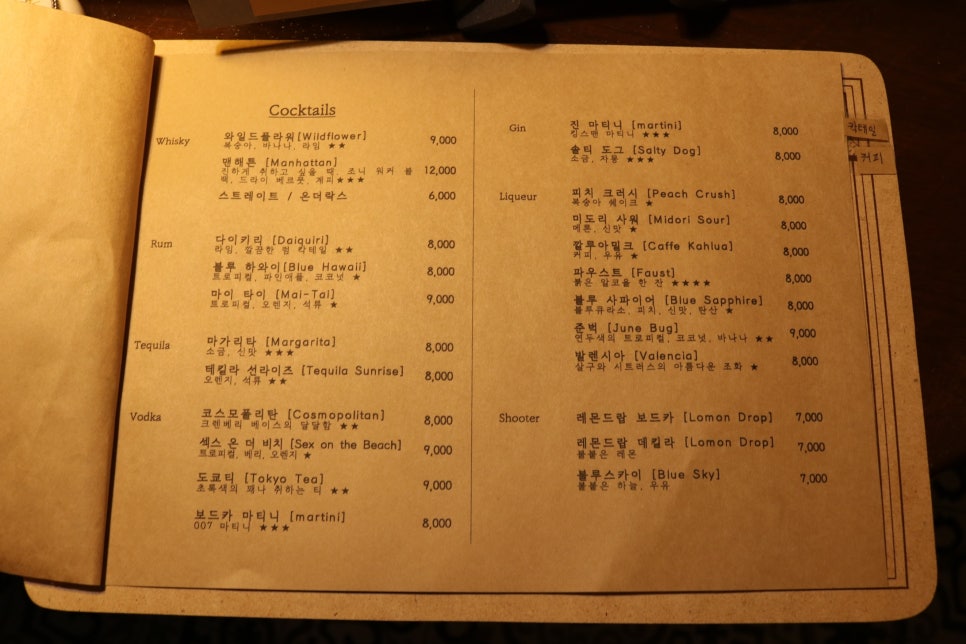 Cocktails
Whisky
와일드플라워[Wildflower] 9,000
복숭아, 바나나, 라임 ★★
맨해튼 [Manhattan] 12,000
진하게 취하고 싶을 때, 조니 워커 블
랙, 드라이 베르뭇, 계피★★★
스트레이트 / 온더락스 6,000
Rum
다이키리 [Daiquiri] 8,000
라임, 깔끔한 럼 칵테일 ★★
블루 하와이[Blue Hawaii] 8,000
트로피컬, 파인애플, 코코넛 ★
마이 타이 [Mai-Tai] 9,000
트로피컬, 오렌지, 석류 ★
Tequila
마가리타 [Margarita] 8,000
소금, 신맛 ★★★
테킬라 선라이즈 [Tequila Sunrise] 8,000
오렌지, 석류 ★★
Vodka
코스모폴리탄 [Cosmopolitan] 8,000
크렌베리 베이스의 달달함 ★★
섹스 온 더 비치 [Sex on the Beach] 9,000
트로피컬, 베리, 오렌지 ★
도쿄티 [Tokyo Tea] 9,000
초록색의 꽤나 취하는 티 ★★
보드카 마티니 [martini] 8,000
007 마티니 ★★★
Gin
진 마티니 [martini] 8,000
킹스맨 마티니 ★★★
솔티 도그 [Salty Dog] 8,000
소금, 자몽 ★★★
Liqueur
피치 크러시 [Peach Crush] 8,000
복숭아 쉐이크 ★
미도리 사워 [Midori Sour] 8,000
메론, 신맛 ★
깔루아밀크 [Caffe Kahlua] 8,000
커피, 우유 ★
파우스트 [Faust] 8,000
붉은 알코올 한 잔 ★★★★
블루 사파이어 [Blue Sapphire] 8,000
블루큐라소, 피치, 신맛, 탄산 ★
준벅 [June Bug] 9,000
연두색의 트로피컬, 코코넛, 바나나 ★★
발렌시아 [Valencia] 8,000
살구와 시트러스의 아름다운 조화 ★
Shooter
레몬드랍 보드카 [Lomon Drop] 7,000
레몬드랍 데킬라 [Lomon Drop] 7,000
불붙은 레몬
블루스카이 [Blue Sky] 7,000
불붙은 하늘, 우유
칵테일
커피